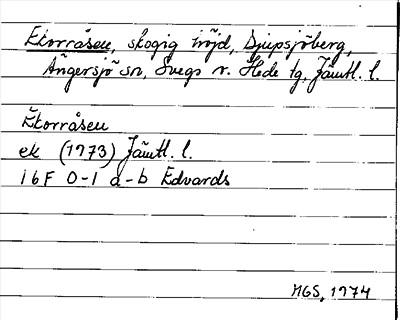 Ekorråsen, skogig höjd, Djupsjöberg,
Ängersjö sn, Svegs o. Hede tg, Jämtl. l.
Ekorråsen
ek (1973) Jämtl. l.
16F 0-1 a-b Edvards
MGS, 1974